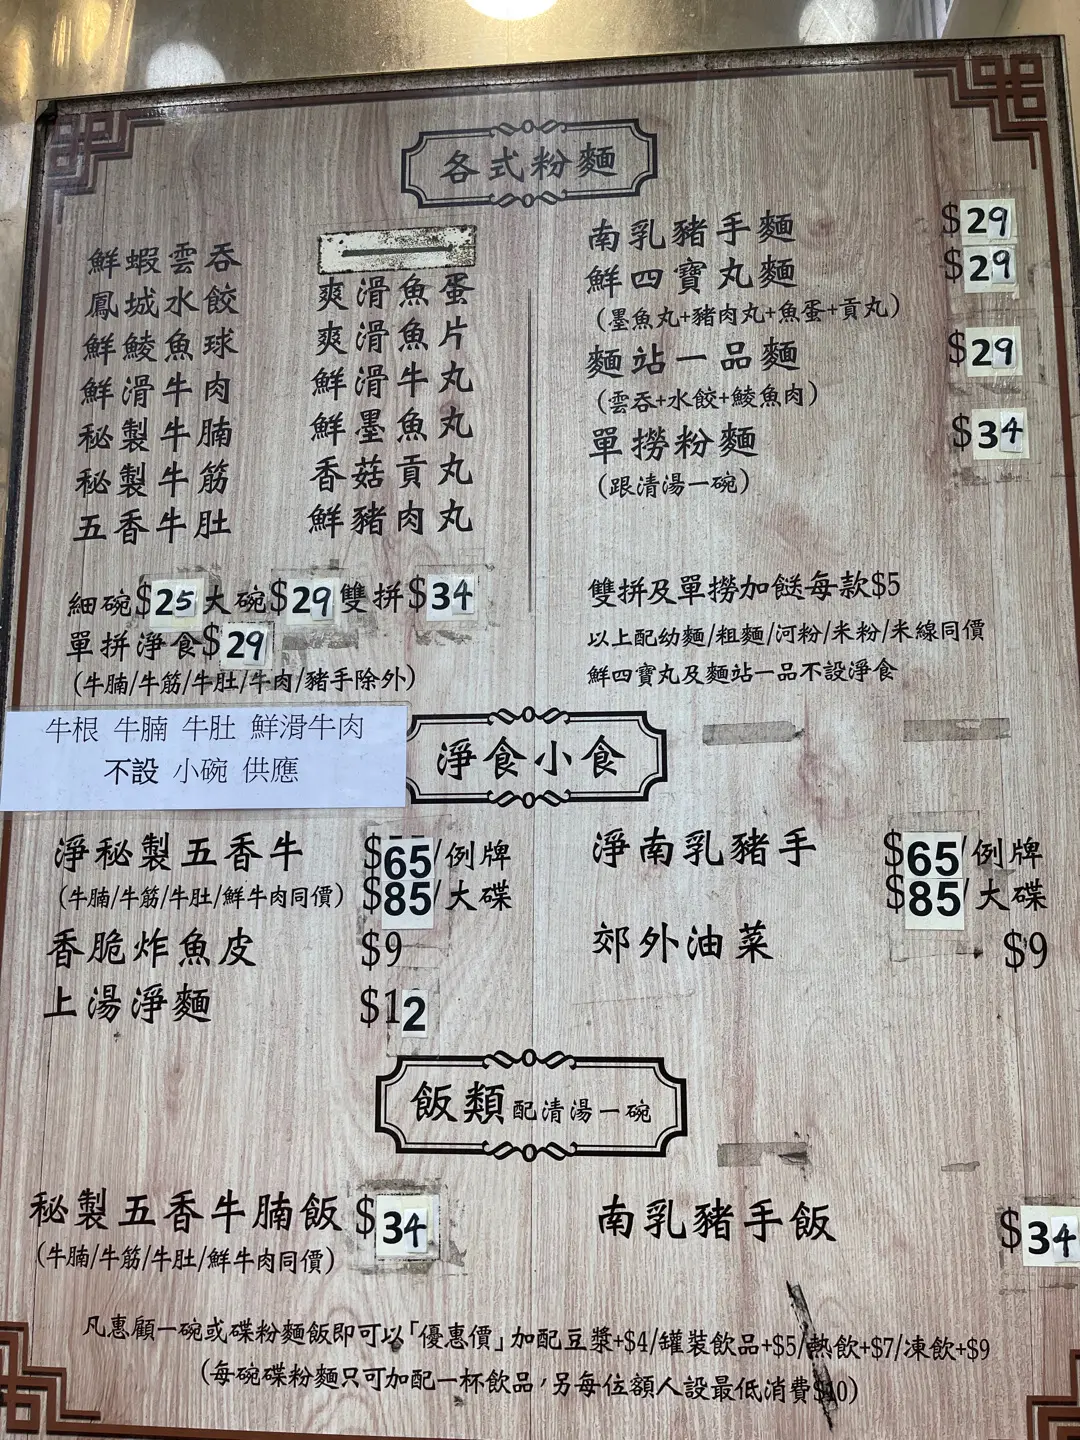 各式粉麵
鮮蝦雲吞
鳳城水餃
鮮鯪魚球
鮮滑牛肉
秘製牛腩
秘製牛筋
五香牛肚
爽滑魚蛋
爽滑魚片
鮮滑牛丸
鮮墨魚丸
香菇貢丸
鮮豬肉丸
細碗$25大碗$29雙拼$34
單拼淨食$29
(牛腩/牛筋/牛肚/牛肉/豬手除外)
南乳豬手麵 $29
鮮四寶丸麵 $29
(墨魚丸+豬肉丸+魚蛋+貢丸)
麵站一品麵 $29
(雲吞+水餃+鯪魚肉)
單撈粉麵 $34
(跟清湯一碗)
雙拼及單撈加餸每款$5
以上配幼麵/粗麵/河粉/米粉/米線同價
鮮四寶丸及麵站一品不設淨食
牛根 牛腩 牛肚 鮮滑牛肉
不設 小碗 供應
淨食小食
淨秘製五香牛 $65/例牌
(牛腩/牛筋/牛肚/鮮牛肉同價) $85/大碟
香脆炸魚皮 $9
上湯淨麵 $12
淨南乳豬手 $65/例牌
$85/大碟
郊外油菜 $9
飯類配清湯一碗
秘製五香牛腩飯 $34
(牛腩/牛筋/牛肚/鮮牛肉同價)
南乳豬手飯 $34
凡惠顧一碗或碟粉麵飯即可以「優惠價」加配豆漿+$4/罐裝飲品+$5/熱飲+$7/凍飲+$9
(每碗碟粉麵只可加配一杯飲品，另每位額人設最低消費$20)